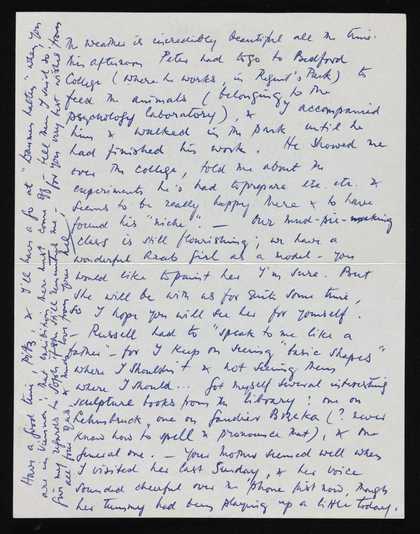 The weather is incredibly beautiful all the time.
This afternoon Peter had to go to Bedford
College (where he works, in Regent's Park) to
feed the animals (belonging to the
psychology laboratory), & I accompanied
him & walked in the park until he
had finished his work. He showed me
over the college, told me about the
experiments he's had to prepare etc. etc. &
seems to be really happy there & to have
found his "niche". — Our mud-pie-making
class is still flourishing; we have a
wonderful Arab girl as a model – you
would like to paint her I'm sure. But
she will be with us for quite some time,
so I hope you will see her for yourself.
– Russell had to "speak to me like a
father" – for I keep on seeing "basic shapes"
where I shouldn't & not seeing them
where I should... Got myself several interesting
sculpture books from the library: one on
Lehmbruck, one on Gaudier Brzeka (? never
know how to spell & pronounce that), & one
general one. – Your mother seemed well when
I visited her last Sunday, & her voice
sounded cheerful over the 'phone just now, though
her tummy had been playing up a little today.
Have a good time, & I'll have a go at
when you
are in
exhibition there must come off – tell them I said so!
give my regards to
if they still remember me –
for you
all for
& much love from your